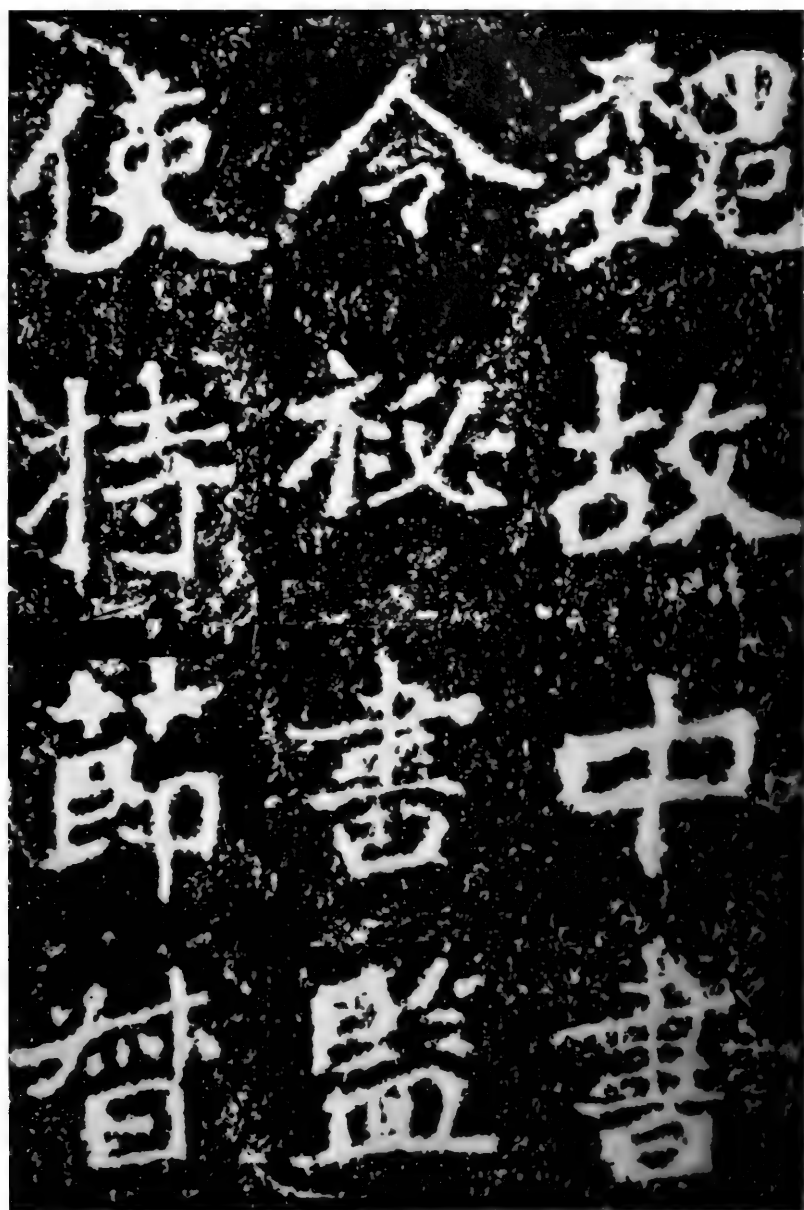 魏故中書
令祕書監
使持節督